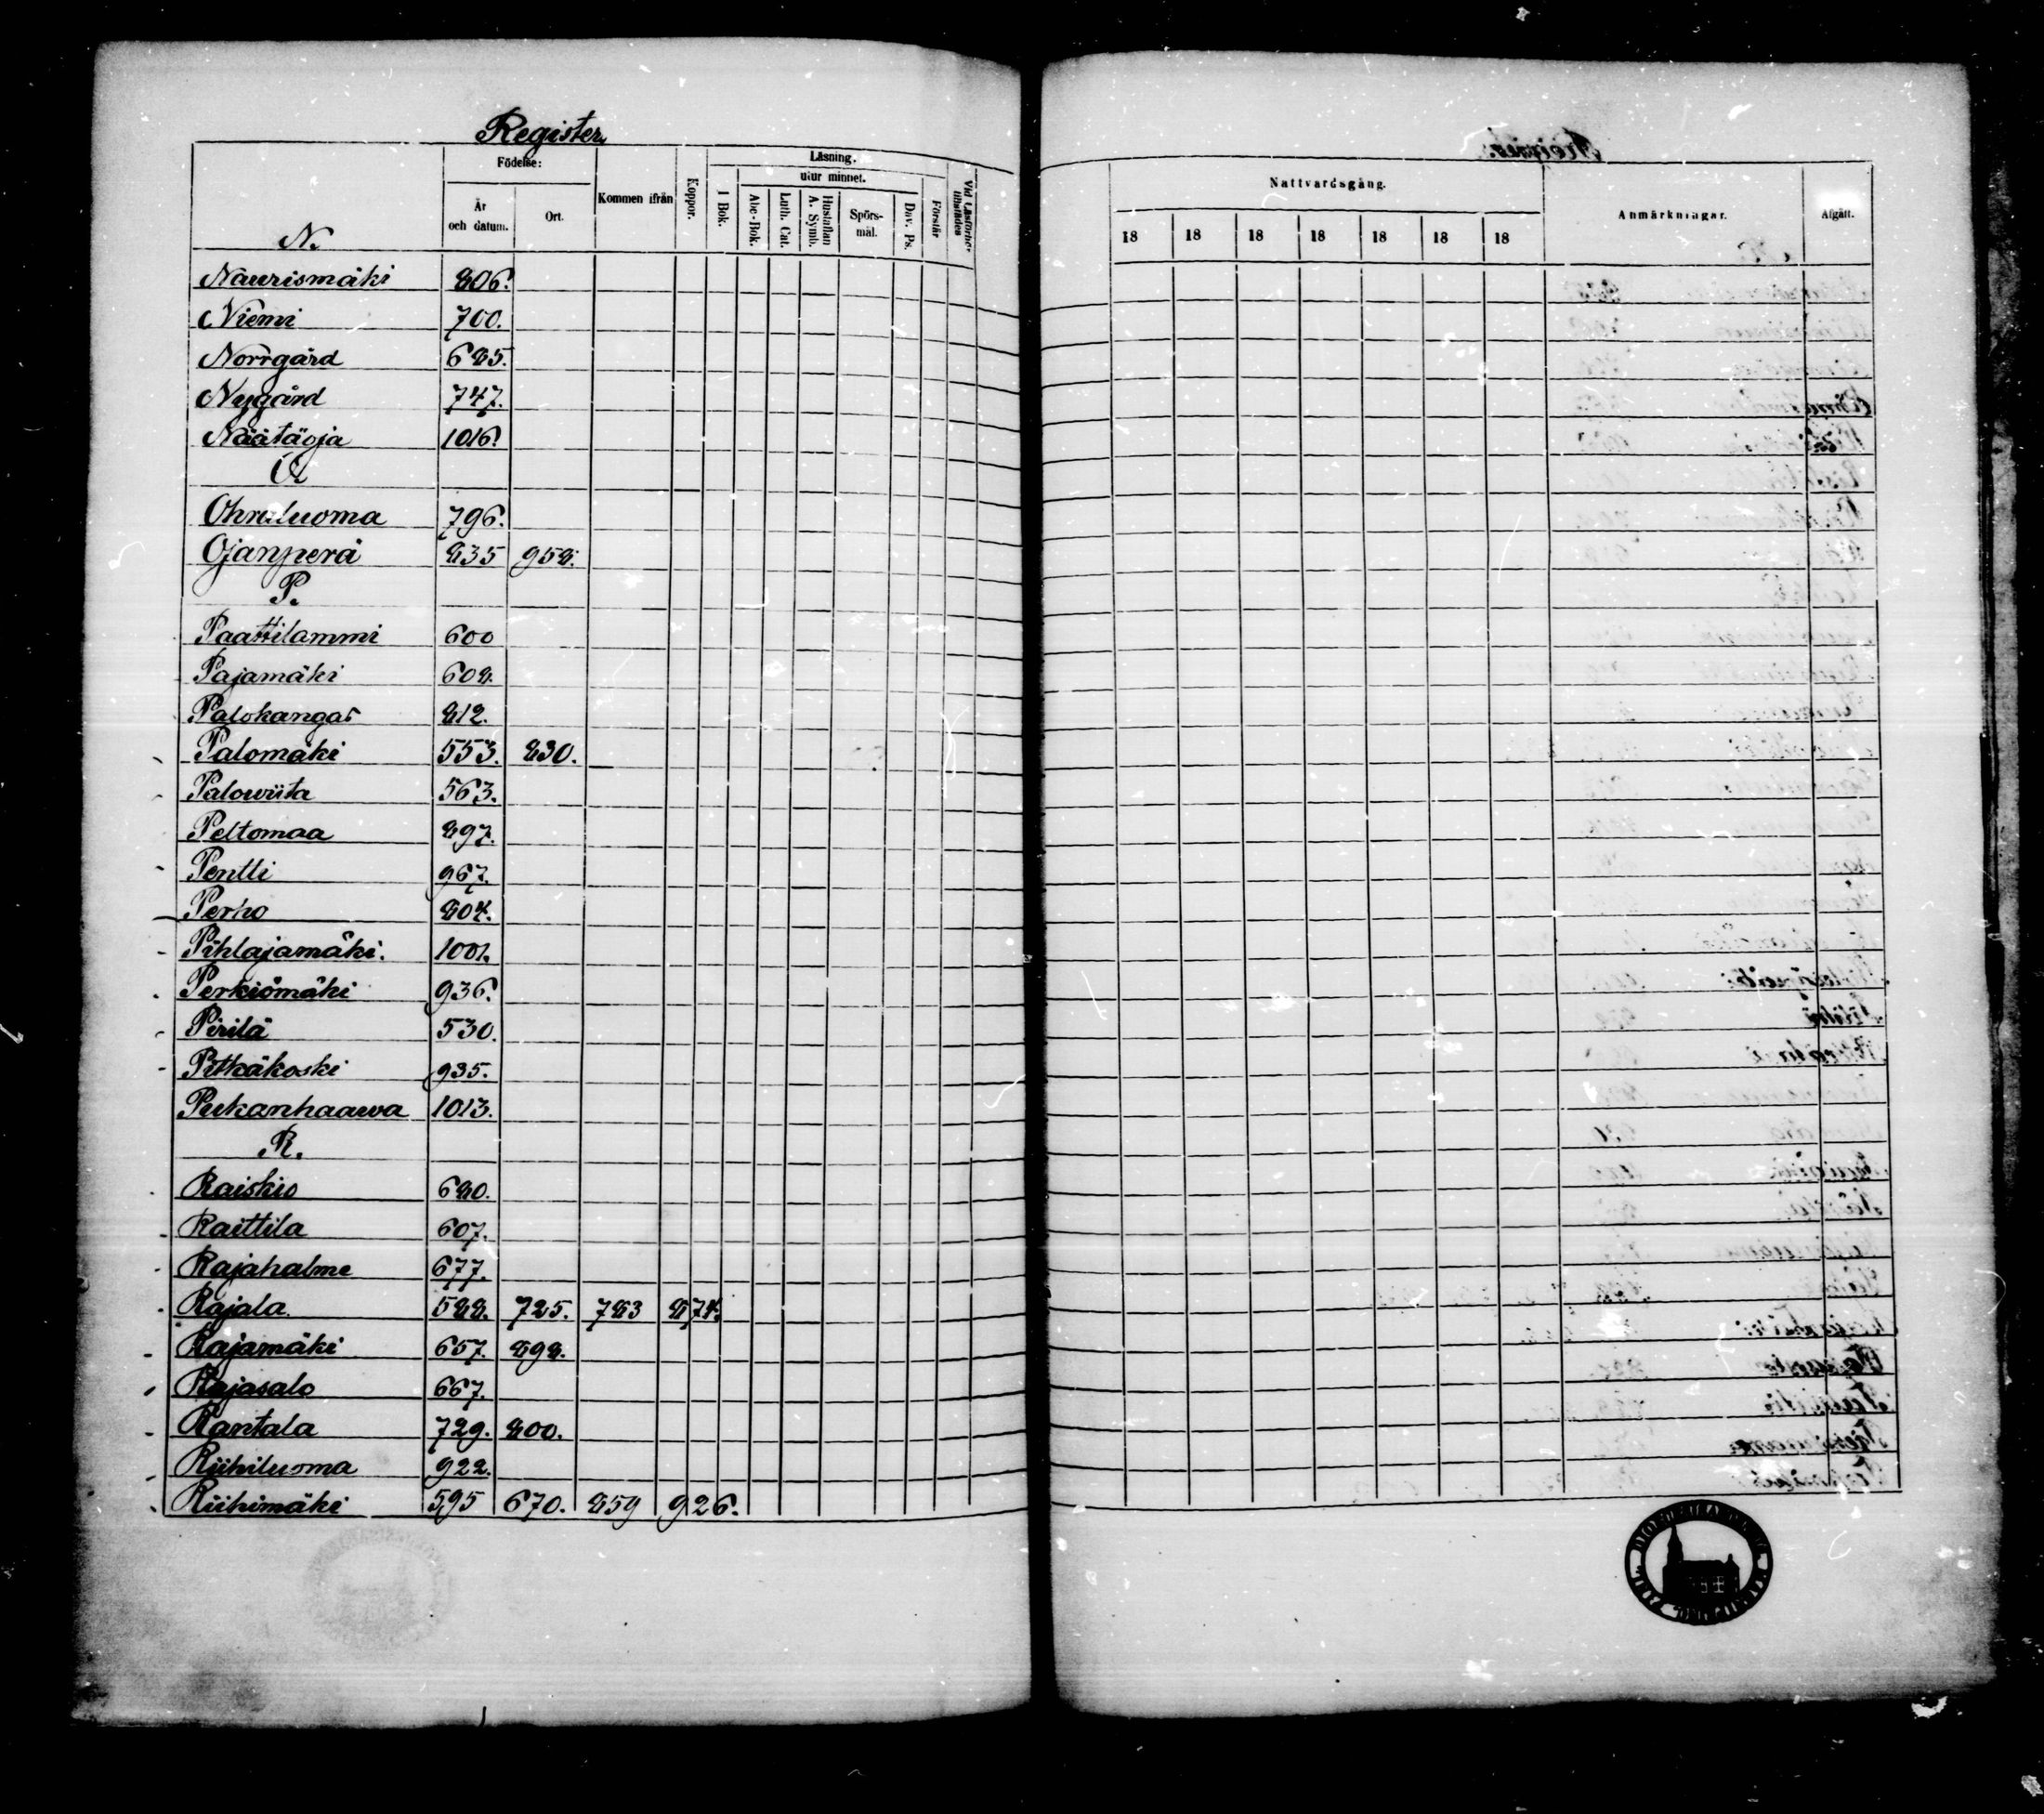 Register
Födelse:
Läsning.
utur minnet.
Kommen ifrån
Koppor.
I Bok.
Abc-Bok.
Luth. Cat.
Hustaflan A. Symb.
Spörsmål.
Dav. Ps.
Förstår
Vid Läsförhör tillstädes
År och datum.
Ort.
Nattvardsgång.
Anmärkningar.
Afgått.
18 18 18 18 18 18 18
N.
Naurismäki 806.
Niemi 700.
Norrgård 685.
Nygård 747.
Näätäoja 1016.
O.
Ohraluoma 796.
Ojanperä 835 958.
P.
Paattilammi 600
Pajamäki 608.
Palokangas 812.
Palomäki 553. 830.
Palowiita 563.
Peltomaa 897.
Pentti 967.
Perho 804.
Pihlajamäki. 1001.
Perkiömäki 936.
Pirilä 530.
Pitkäkoski 935.
Pukanhaawa 1013.
R.
Raiskio 680.
Raittila 607.
Rajahalme 677.
Rajala 588. 725. 783 874.
Rajamäki 657. 898.
Rajasalo 667.
Rantala 729. 800.
Riihiluoma 922.
Riihimäki 595 670. 859 926.